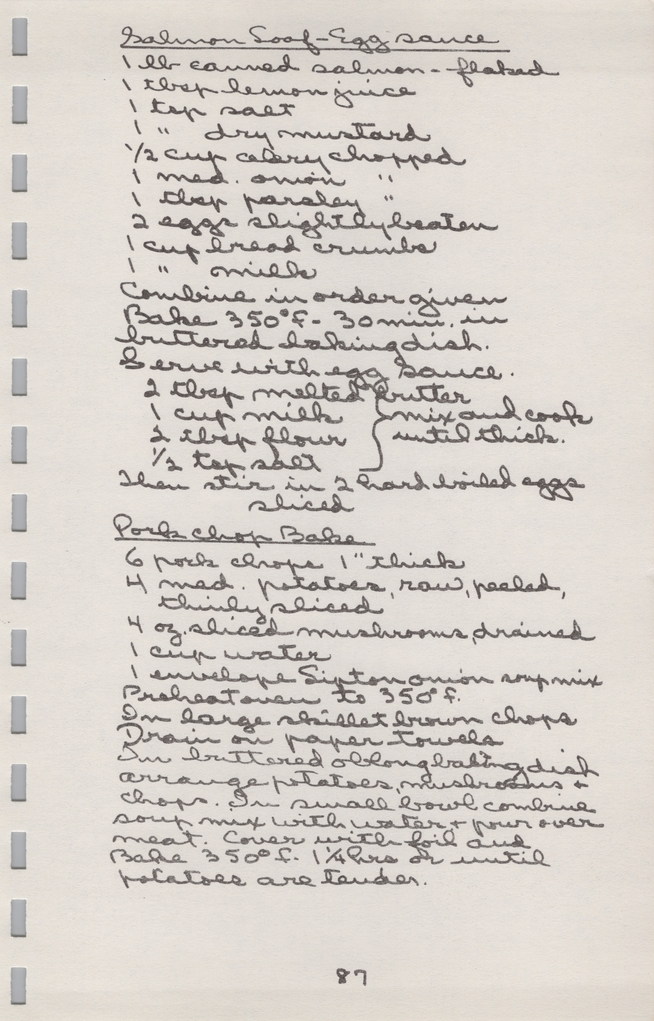 Salmon Loaf-Egg sauce
1 lb canned salmon - flaked
1 tbsp lemon juice
1 tsp salt
1 " dry mustard
1/2 cup celery chopped
1 med. onion "
1 tbsp parsley "
2 eggs slightly beaten
1 cup bread crumbs
1 " milk
Combine in order given
Bake 350°F - 30 min. in
buttered baking dish.
Serve with egg sauce.
2 tbsp melted butter
1 cup milk } mix and cook
2 tbsp flour until thick.
1/2 tsp salt
Then stir in 2 hard boiled eggs
sliced
Pork chop Bake
6 pork chops 1" thick
4 med. potatoes, raw, peeled,
thinly sliced
4 oz. sliced mushrooms, drained
1 cup water
1 envelope Lipton onion soup mix
Preheat oven to 350°F.
In large skillet brown chops
Drain on paper towels
In buttered oblong baking dish
arrange potatoes, mushrooms +
chops. In small bowl combine
soup mix with water + pour over
meat. Cover with foil and
Bake 350°F. 1 1/4 hrs or until
potatoes are tender.
87